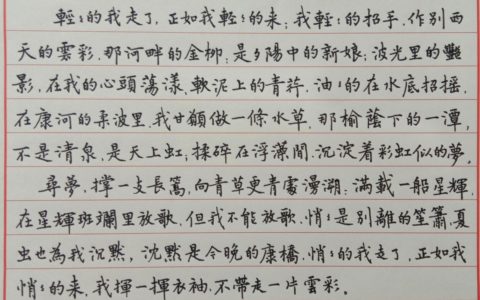 輕〻的我走了,正如我輕〻的來;我輕〻的招手,作別西
天的雲彩.那河畔的金柳;是夕陽中的新娘;波光里的艷
影,在我的心頭蕩漾.軟泥上的青荇,油〻的在水底招搖.
在康河的柔波里,我甘願做一條水草.那榆蔭下的一潭,
不是清泉,是天上虹;揉碎在浮藻間,沉淀着彩虹似的夢.
尋夢,撐一支長篙,向青草更青處漫溯;滿載一船星輝,
在星輝斑斕里放歌.但我不能放歌,悄〻是別離的笙簫.夏
虫也為我沉默,沈默是今晚的康橋.悄〻的我走了,正如我
悄〻的來.我揮一揮衣袖.不帶走一片雲彩.